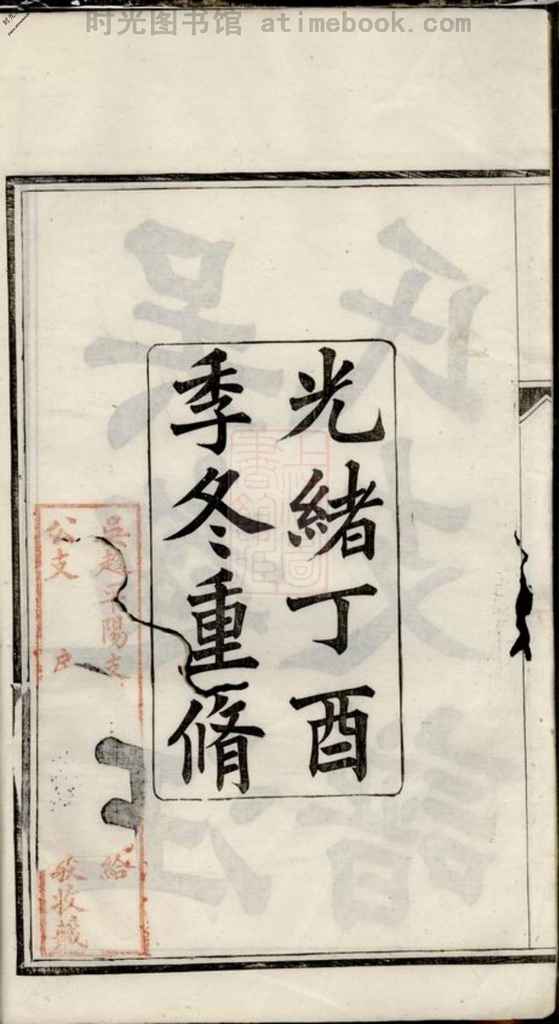 时光图书馆 atimebook.com
光緒丁酉
季冬重脩
吳越 陽支 給
公支 戶 收藏